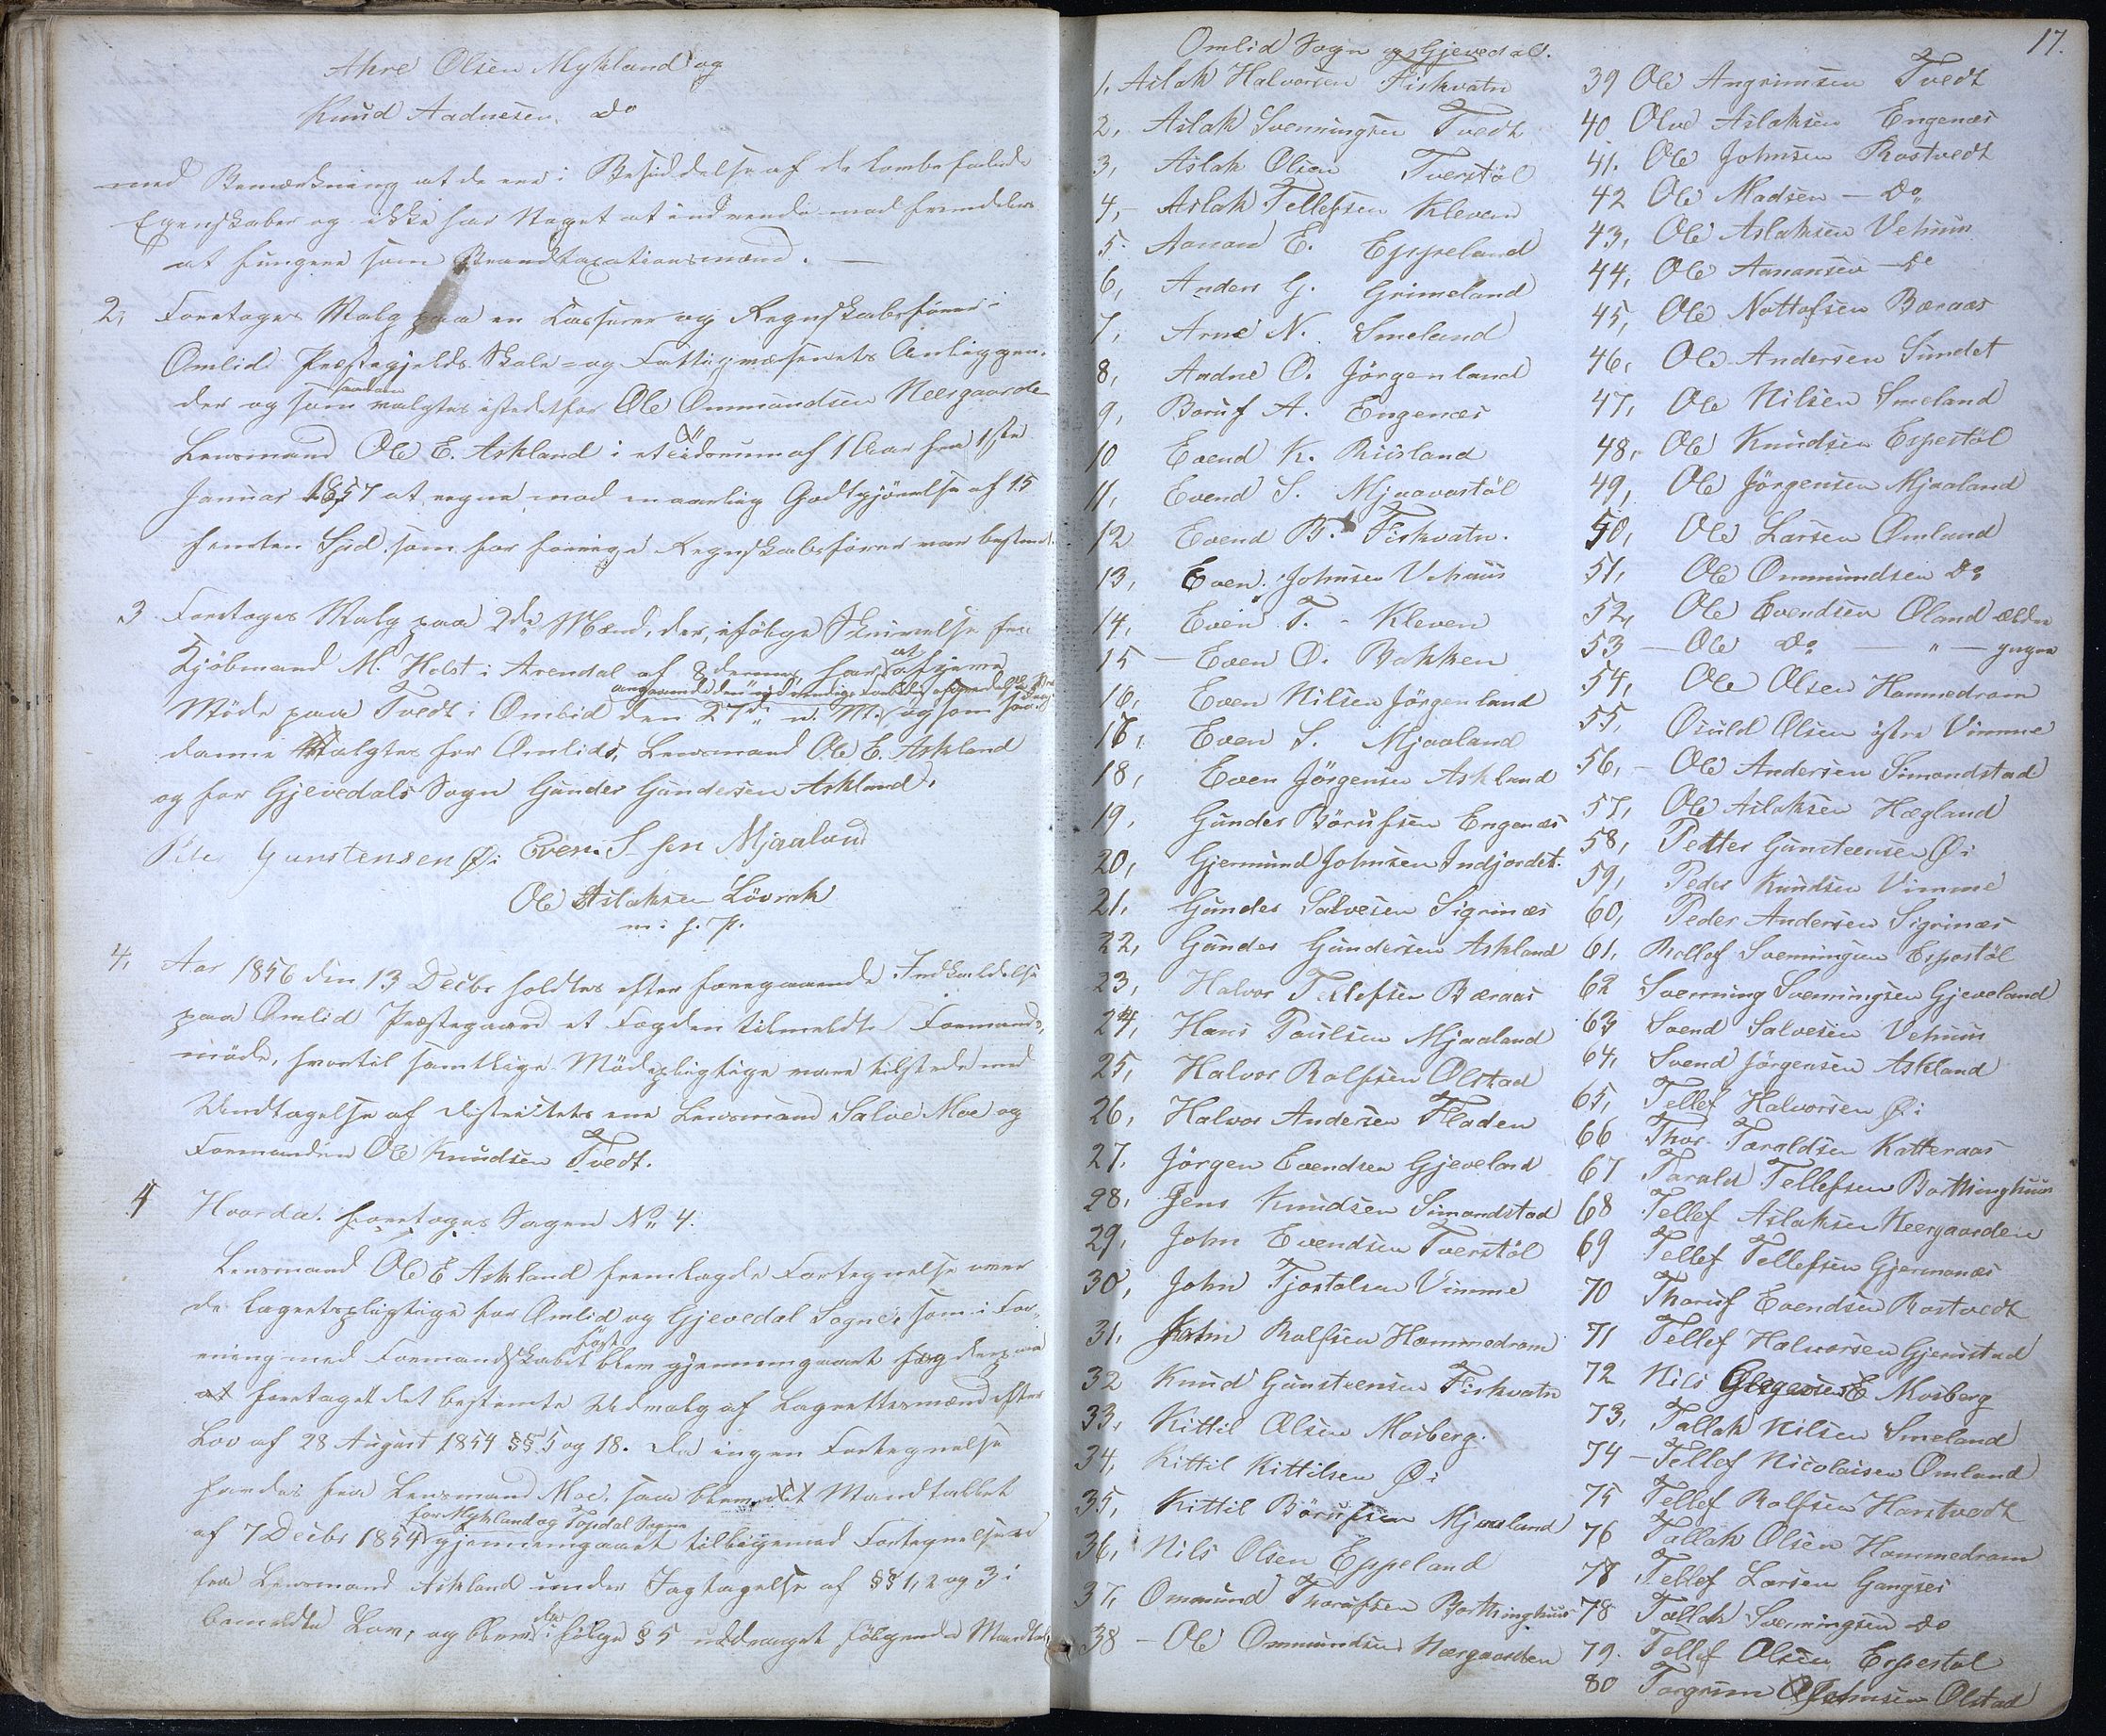 Ahre Olsen Mykland og
Knud Aadnesen do
med Bemærkning at de ere i Besiddelse af de lovbefalede
Egenskaber og ikke har Noget at indvende mod fremdeles
at fungere som Brandtaxationsmænd. —
2, Foretoges Valg paa en Kasserer og Regnskabsfører i
Omlid Præstegjelds Skole- og Fattigvæsenets Anliggen-
der og som saadan valgtes istedetfor Ole Ommundsen Neergaarden
Lensmand Ole E. Askland i et Tidsrum af 1 Aar fra 1ste
Januar 1857 at regne mod en aarlig Godtgjørelse af 15
femten Spd. som for forrige Regnskabsfører var bestemt.
3 Foretoges Valg paa 2de Mænd, der, ifølge Skrivelse fra
Kjøbmand M. Holst i Arendal af 8 dennes, har at afgive
Møde paa Tvedt i Omlid den 27de n. M. og som saa-
danne valgtes for Omlids, Lensmand Ole E. Askland
og for Gjevedals Sogn Gunder Gundersen Askland.
Peder Gunstensen Øi Even S sen Mjaaland
Ole Aslaksen Løvrak
m. f. P.
4, Aar 1856 den 13 Decbr holdtes efter foregaaende Indkaldelse
paa Omlid Præstegaard et Fogden tilmeldte Formands-
møde, hvortil samtlige Mødepligtige vare tilstede med
Undtagelse af Distriktets ene Lensmand Salve Moe og
Formanden Ole Knudsen Tvedt.
4 Hvorda foretoges Sagen No 4.
Lensmand Ole E Askland fremlagde Fortegnelse over
de Lagretspligtige for Omlid og Gjevedal Sogne, som i For-
ening med Formandskabet først blev gjennemgaaet for derpaa
at foretaget det bestemte Udvalg af Lagrettesmænd efter
Lov af 28 August 1854 §§ 5 og 18. Da ingen Fortegnelse
fandes fra Lensmand Moe, saa blev det Mandtallet
af 7 Decbr 1854 for Mykland og Topdal Sogne gjennemgaaet tilligemed Fortegnelsen
fra Lensmand Askland under Iagtagelse af §§ 1, 2 og 3 i
bemeldte Lov, og blev da ifølge § 5 uddraget følgende Mandtal
17.
Omlid Sogn og Gjevedal.
1, Aslak Halvorsen Fiskvatn
2, Aslak Svenningsen Tvedt
3, Aslak Olsen Tverstöl
4, Aslak Tellefsen Kleven
5. Aanan E. Eppeland
6, Anders G. Grimeland
7, Arne N. Smeland
8, Aadne O. Jörgenland
9, Boruf A. Engenæs
10 Evend K. Riisland
11, Evend S. Mjaavastöl
12 Evend B. Fiskvatn.
13, Even Johnsen Vehuus
14, Even T. Kleven
15 — Even O. Bakken
16, Even Nilsen Jörgenland
17, Even S. Mjaaland
18, Even Jörgensen Askland
19, Gunder Börufsen Engenæs
20, Gjermund Johnsen Indjordet.
21, Gunder Salvesen Sigrinæs
22, Gunder Gundersen Askland
23, Halvor Tellefsen Bæraas
24, Hans Paulsen Mjaaland
25, Halvor Rolfsen Olstad
26, Halvor Andersen Fladen
27. Jörgen Evendsen Gjeveland
28, Jens Knudsen Simondstad
29, John Evendsen Tverstöl
30, John Tjostolsen Vimme
31, John Rolfsen Hommedrom
32 Knud Gunsteensen Fiskvatn
33, Kittil Olsen Mosberg.
34, Kittil Kittilsen Øi
35, Kittil Börufsen Mjaaland
36, Nils Olsen Eppeland
37, Ommund Thorufsen Borthinghuus
38 — Ole Ommundsen Næsgaarden
39 Ole Angrimsen Tvedt
40 Olve Aslaksen Engenæs
41. Ole Johnsen Rostvedt
42 Ole Madsen — do
43, Ole Aslaksen Vehuus
44, Ole Aanansen — do
45, Ole Nottolfsen Bæraas
46, Ole Andersen Sundet
47, Ole Nilsen Smeland
48, Ole Knudsen Espestöl
49, Ole Jörgensen Mjaaland
50, Ole Larsen Omland
51, Ole Ommundsen do
52, Ole Evendsen Øland ældre
53 — Ole do — " — yngre
54, Ole Olsen Hommedrom
55, Osuld Olsen østre Vimme
56, — Ole Andersen Simondstad
57, Ole Aslaksen Hægland
58, Petter Gunsteensen Øi
59, Peder Knudsen Vimme
60, Peder Andersen Sigrinæs
61, Rollef Svenningsen Espestöl
62 Svenning Svenningsen Gjeveland
63 Svend Salvesen Vehuus
64, Svend Jörgensen Askland
65, Tellef Halvorsen Øi
66 Thor Taraldsen Katteraas
67 Tarald Tellefsen Borthinghuus
68 Tellef Aslaksen Neergaarden
69 Tellef Tellefsen Gjermonæs
70 Thoruf Evendsen Rostvedt
71 Tellef Halvorsen Gjerustad
72 Nils E Mosberg
73, Tallak Nilsen Smeland
74 — Tellef Nicolaisen Omland
75 Tellef Rolfsen Harstvedt
76 Tallak Olsen Hommedrom
77 Tellef Larsen Gangsei
78 Tallak Svenningsen do
79. Tellef Olsen Espestöl
80 Torgrim Johnsen Olstad